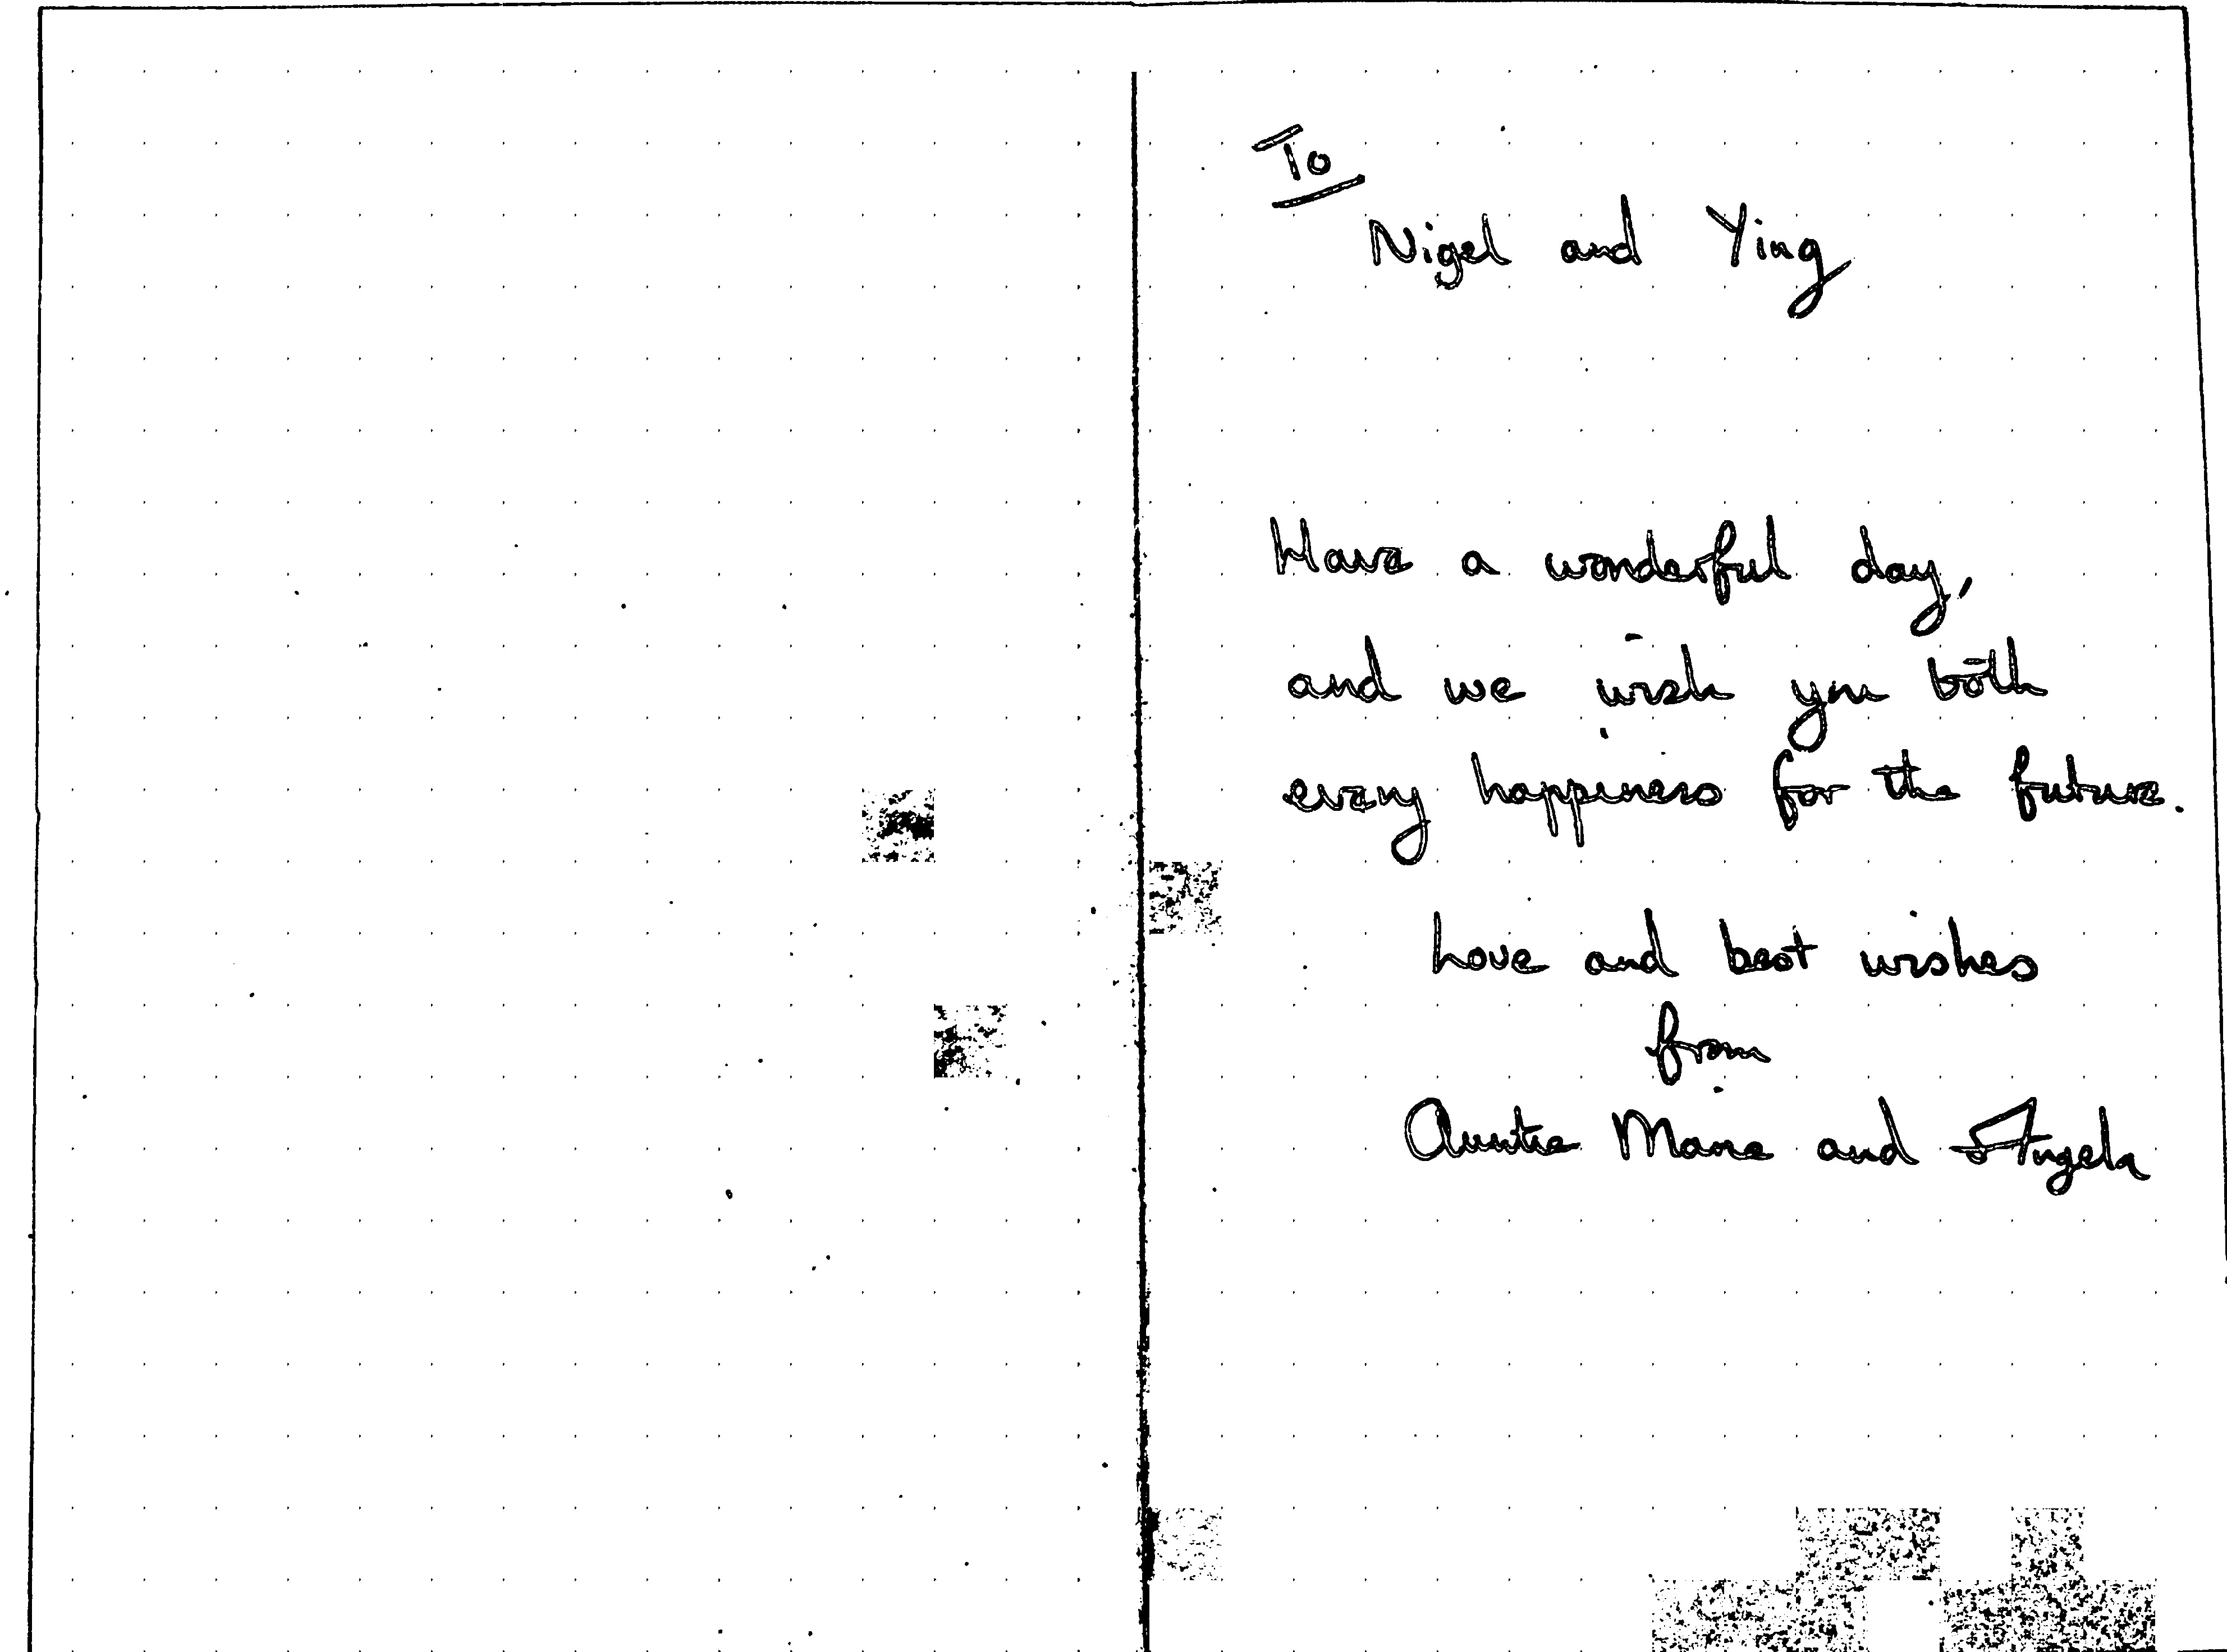 To
Nigel and Ying
Have a wonderful day,
and we wish you both
every happiness for the future.
Love and best wishes
from
Auntie Marie and Angela